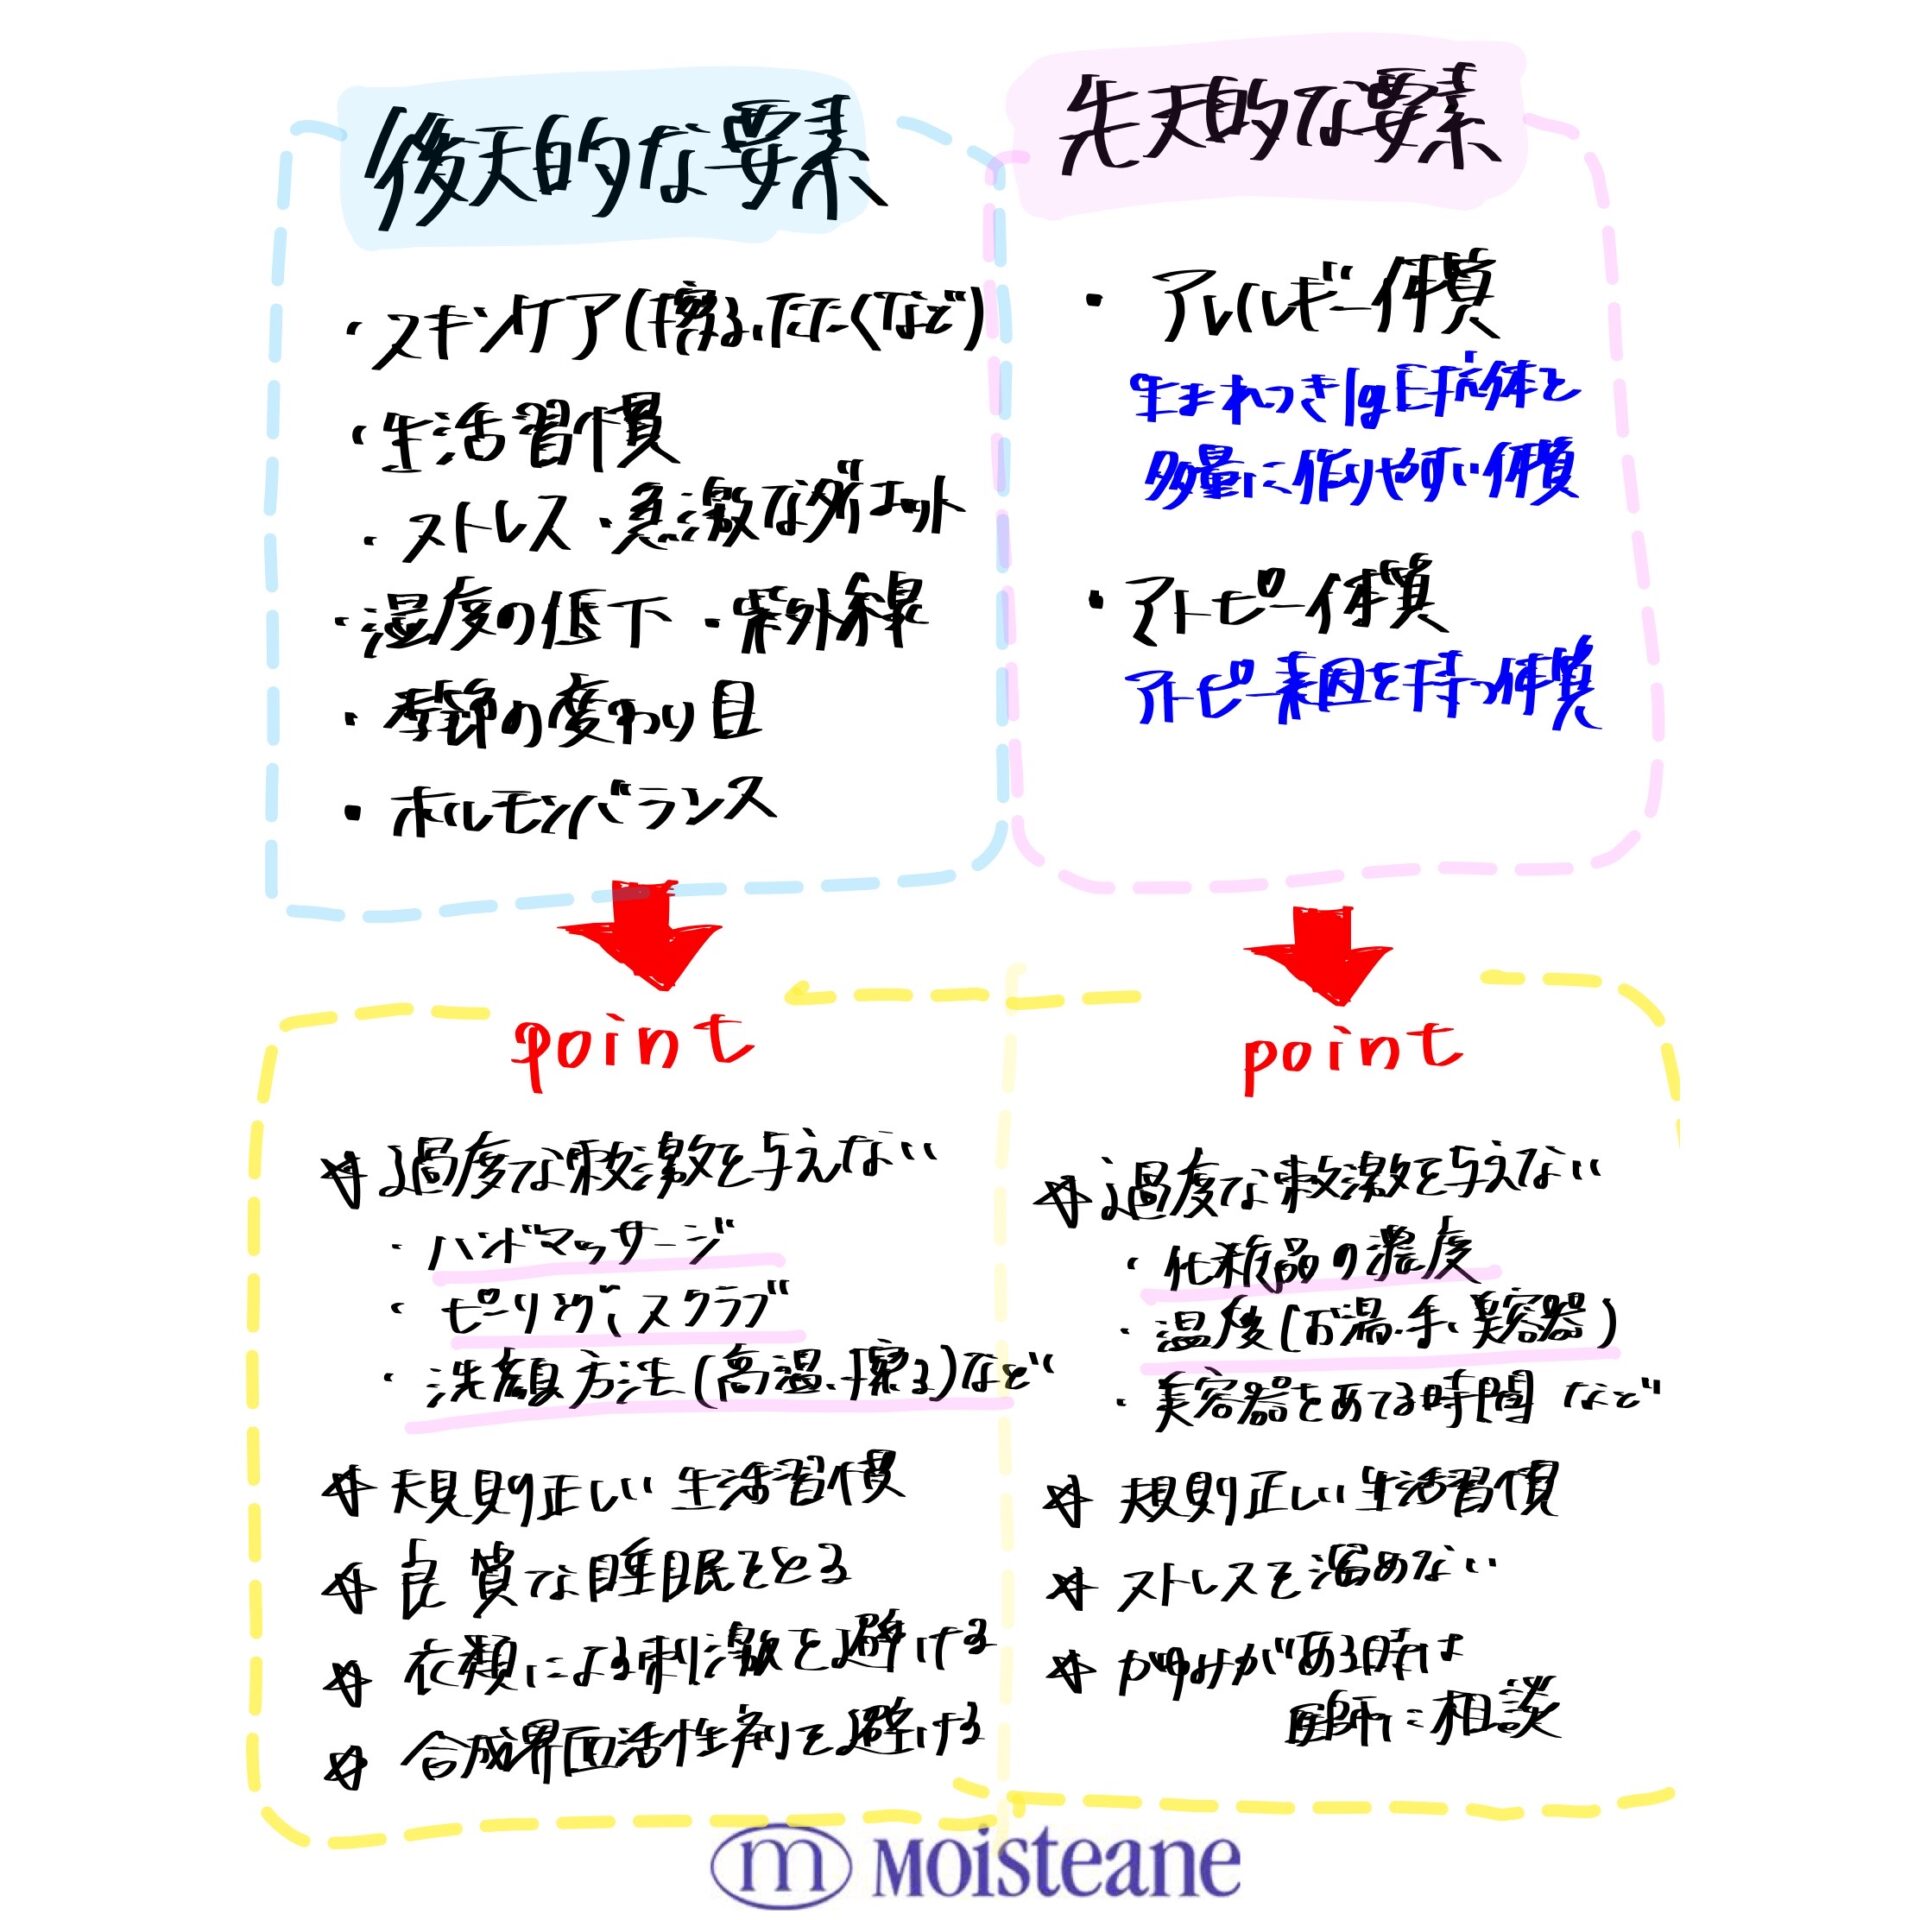 後天的な要素
・スキンケア(擦る、たたくなど)
・生活習慣
・ストレス・急激なダイエット
・湿度の低下 ・紫外線
・季節の変わり目
・ホルモンバランス
先天的な要素
・アレルギー体質
生まれつきIgE抗体を
多量に作りやすい体質
・アトピー体質
アトピー素因を持つ体質
point
☆過度な刺激を与えない
・ハンドマッサージ
・ピーリング、スクラブ
・洗顔方法(高温、擦る)など
☆規則正しい生活習慣
☆良質な睡眠をとる
☆衣類による刺激を避ける
☆合成界面活性剤を避ける
point
☆過度な刺激を与えない
・化粧品の濃度
・温度(お湯、手、美容器)
・美容器をあてる時間 など
☆規則正しい生活習慣
☆ストレスを溜めない
☆かゆみがある時は
医師に相談
m MOISTEANE